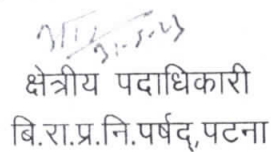 क्षेत्रीय पदाधिकारी
बि.रा.प्र.नि.पर्षद्,पटना